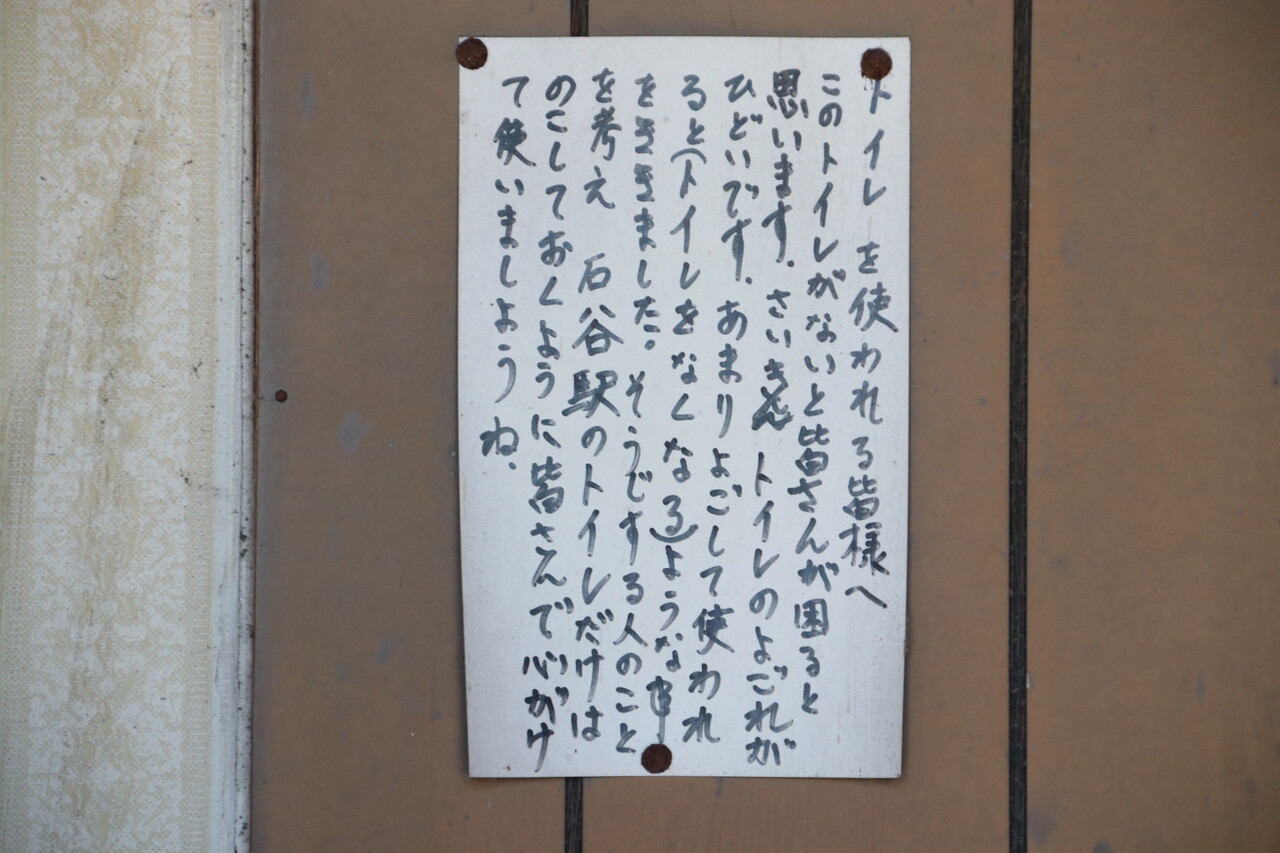 トイレを使われる皆様へ
このトイレがないと皆さんが困ると
思います。さいきん トイレのよごれが
ひどいです。あまりよごして使われ
ると(トイレをなくなる)ような事
をききました。そうですする人のこと
を考え 石谷駅のトイレだけは
のこしておくように皆さんで心がけ
て使いましようね、